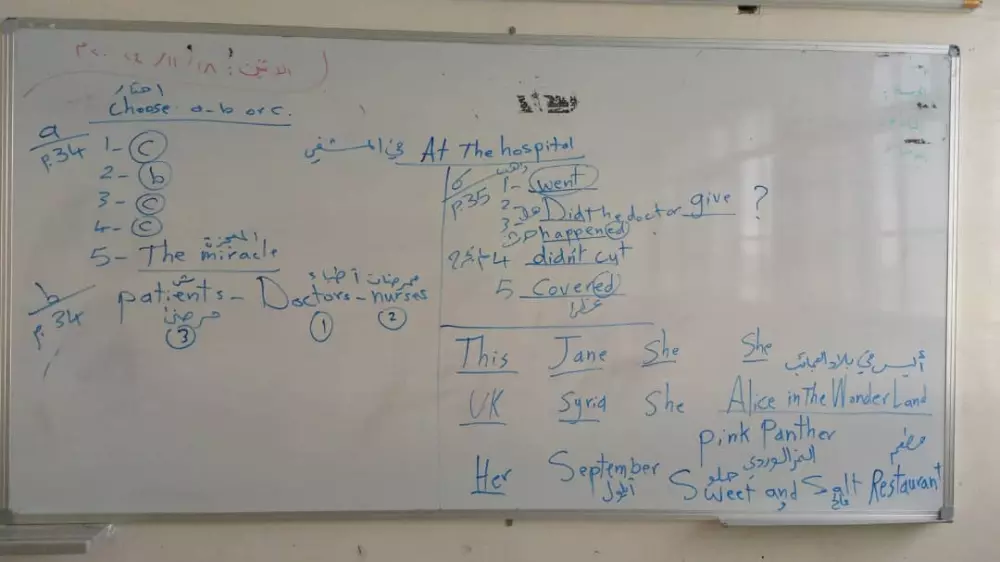 الاثنين: ١٨/ ١١/ ٢٠٢٤ م
اختار
Choose a-b or c.
a
p.34
1- c
2- b
3- c
4- c
المعجزة
5- The miracle
b
p. 34
ممرضات أطباء
patients - Doctors - nurses
مرضى
3 1 2
في المشفى At the hospital
p.35
1- went
2- Did the doctor give ?
3- happened
4 didn't cut
5 Covered
This Jane She She
أليس في بلاد العجائب
UK Syria She Alice in The Wonder Land
Pink Panther
النمر الوردي
Her September Sweet and Salt Restaurant
أيلول حلو و مالح